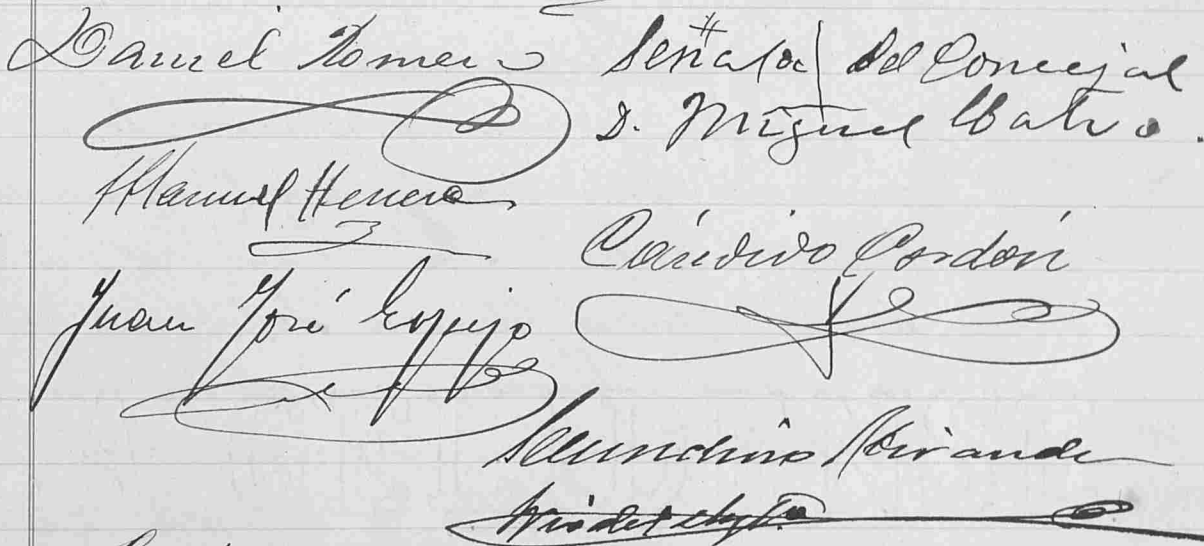 Daniel Romero
Señal del Concejal
D. Miguel Calvo.
Manuel Herrero
Cándido Cordón
Juan José Espejo
Secundino Miranda